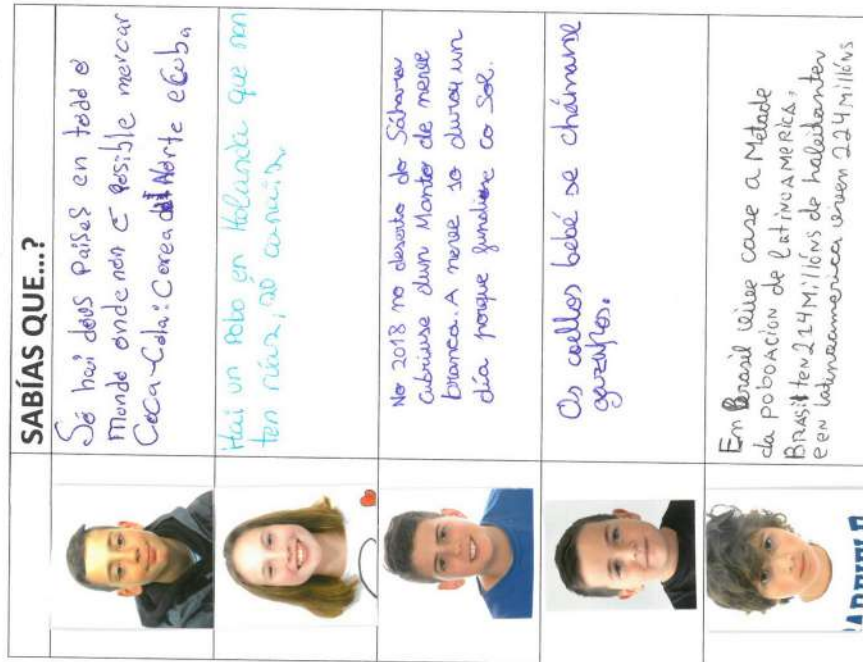 SABÍAS QUE...?
Só hai dous países en todo o
mundo onde non é posible mercar
Coca-Cola: Corea del Norte e Cuba
Hai un pobo en Holanda que non
ten rúas, só canais.
No 2018 no deserto do Sáhara
cubriuse dun manto de neve
branca. A neve so durou un
día porque fundiuse co sol.
Os coellos bebé se chámanse
gazapos.
En Brasil vive case a Metade
da poboación de latinoAMERICA,
BRASIL ten 214 Millóns de habitantes
e en latinoamerica viven 224 millóns